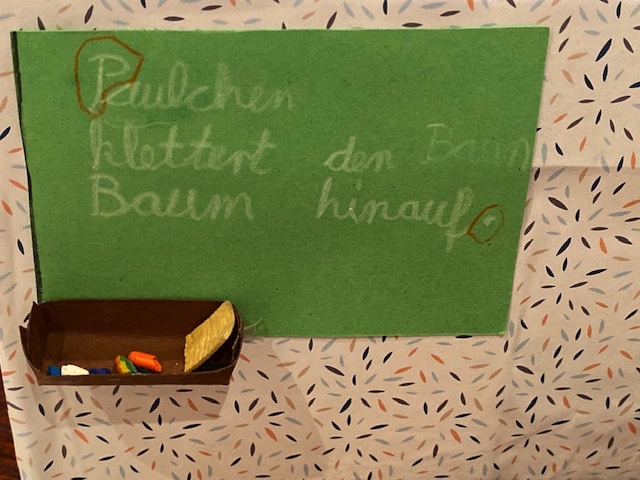 Paulchen
klettert den Baum
Baum hinauf.